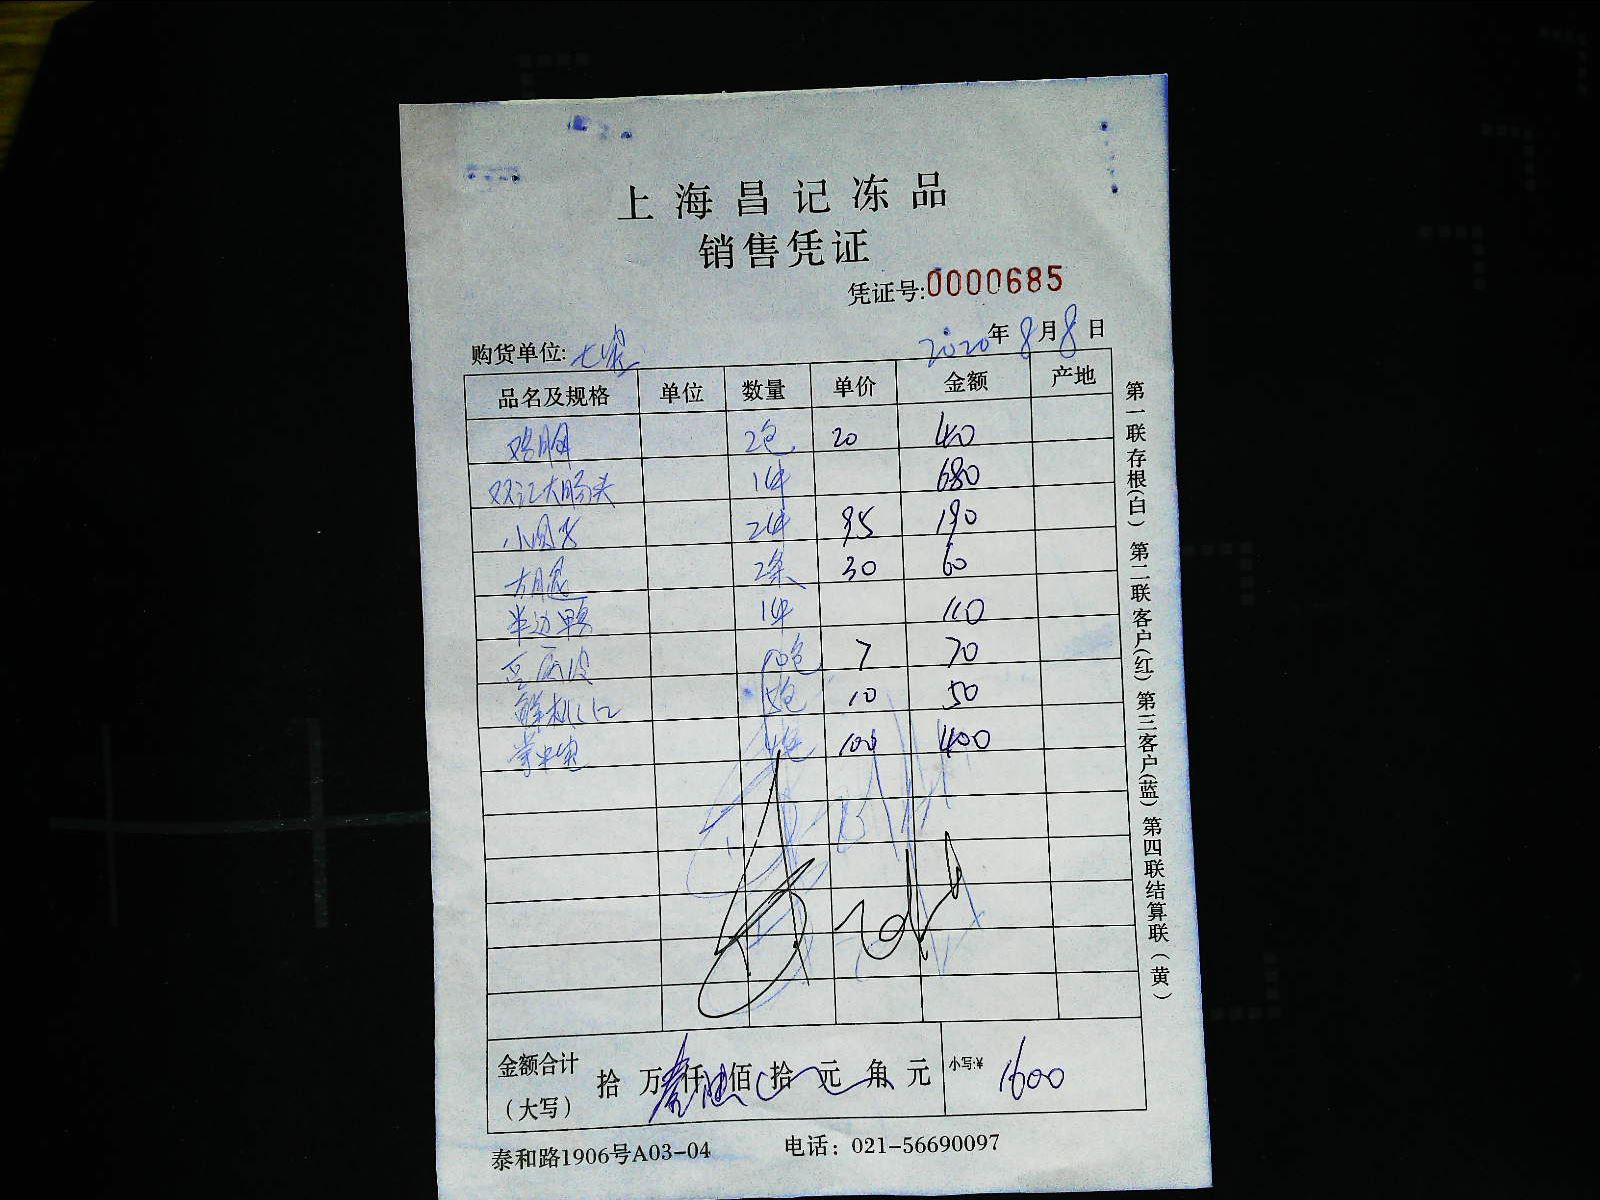 上海昌记冻品
销售凭证
凭证号:0000685
购货单位: 2020年8月8日
品名及规格 单位 数量 单价 金额 产地
鸡胸 2包 20 40
双汇大肠头 1件 680
2件 95 190
方腿 2条 30 60
半边 1件 110
10包 7 70
5包 10 50
4包 100 400
金额合计(大写) 拾万仟佰拾元角元 小写:¥ 1600
泰和路1906号A03-04 电话：021-56690097
第一联存根(白) 第二联客户(红) 第三客户(蓝) 第四联结算联(黄)